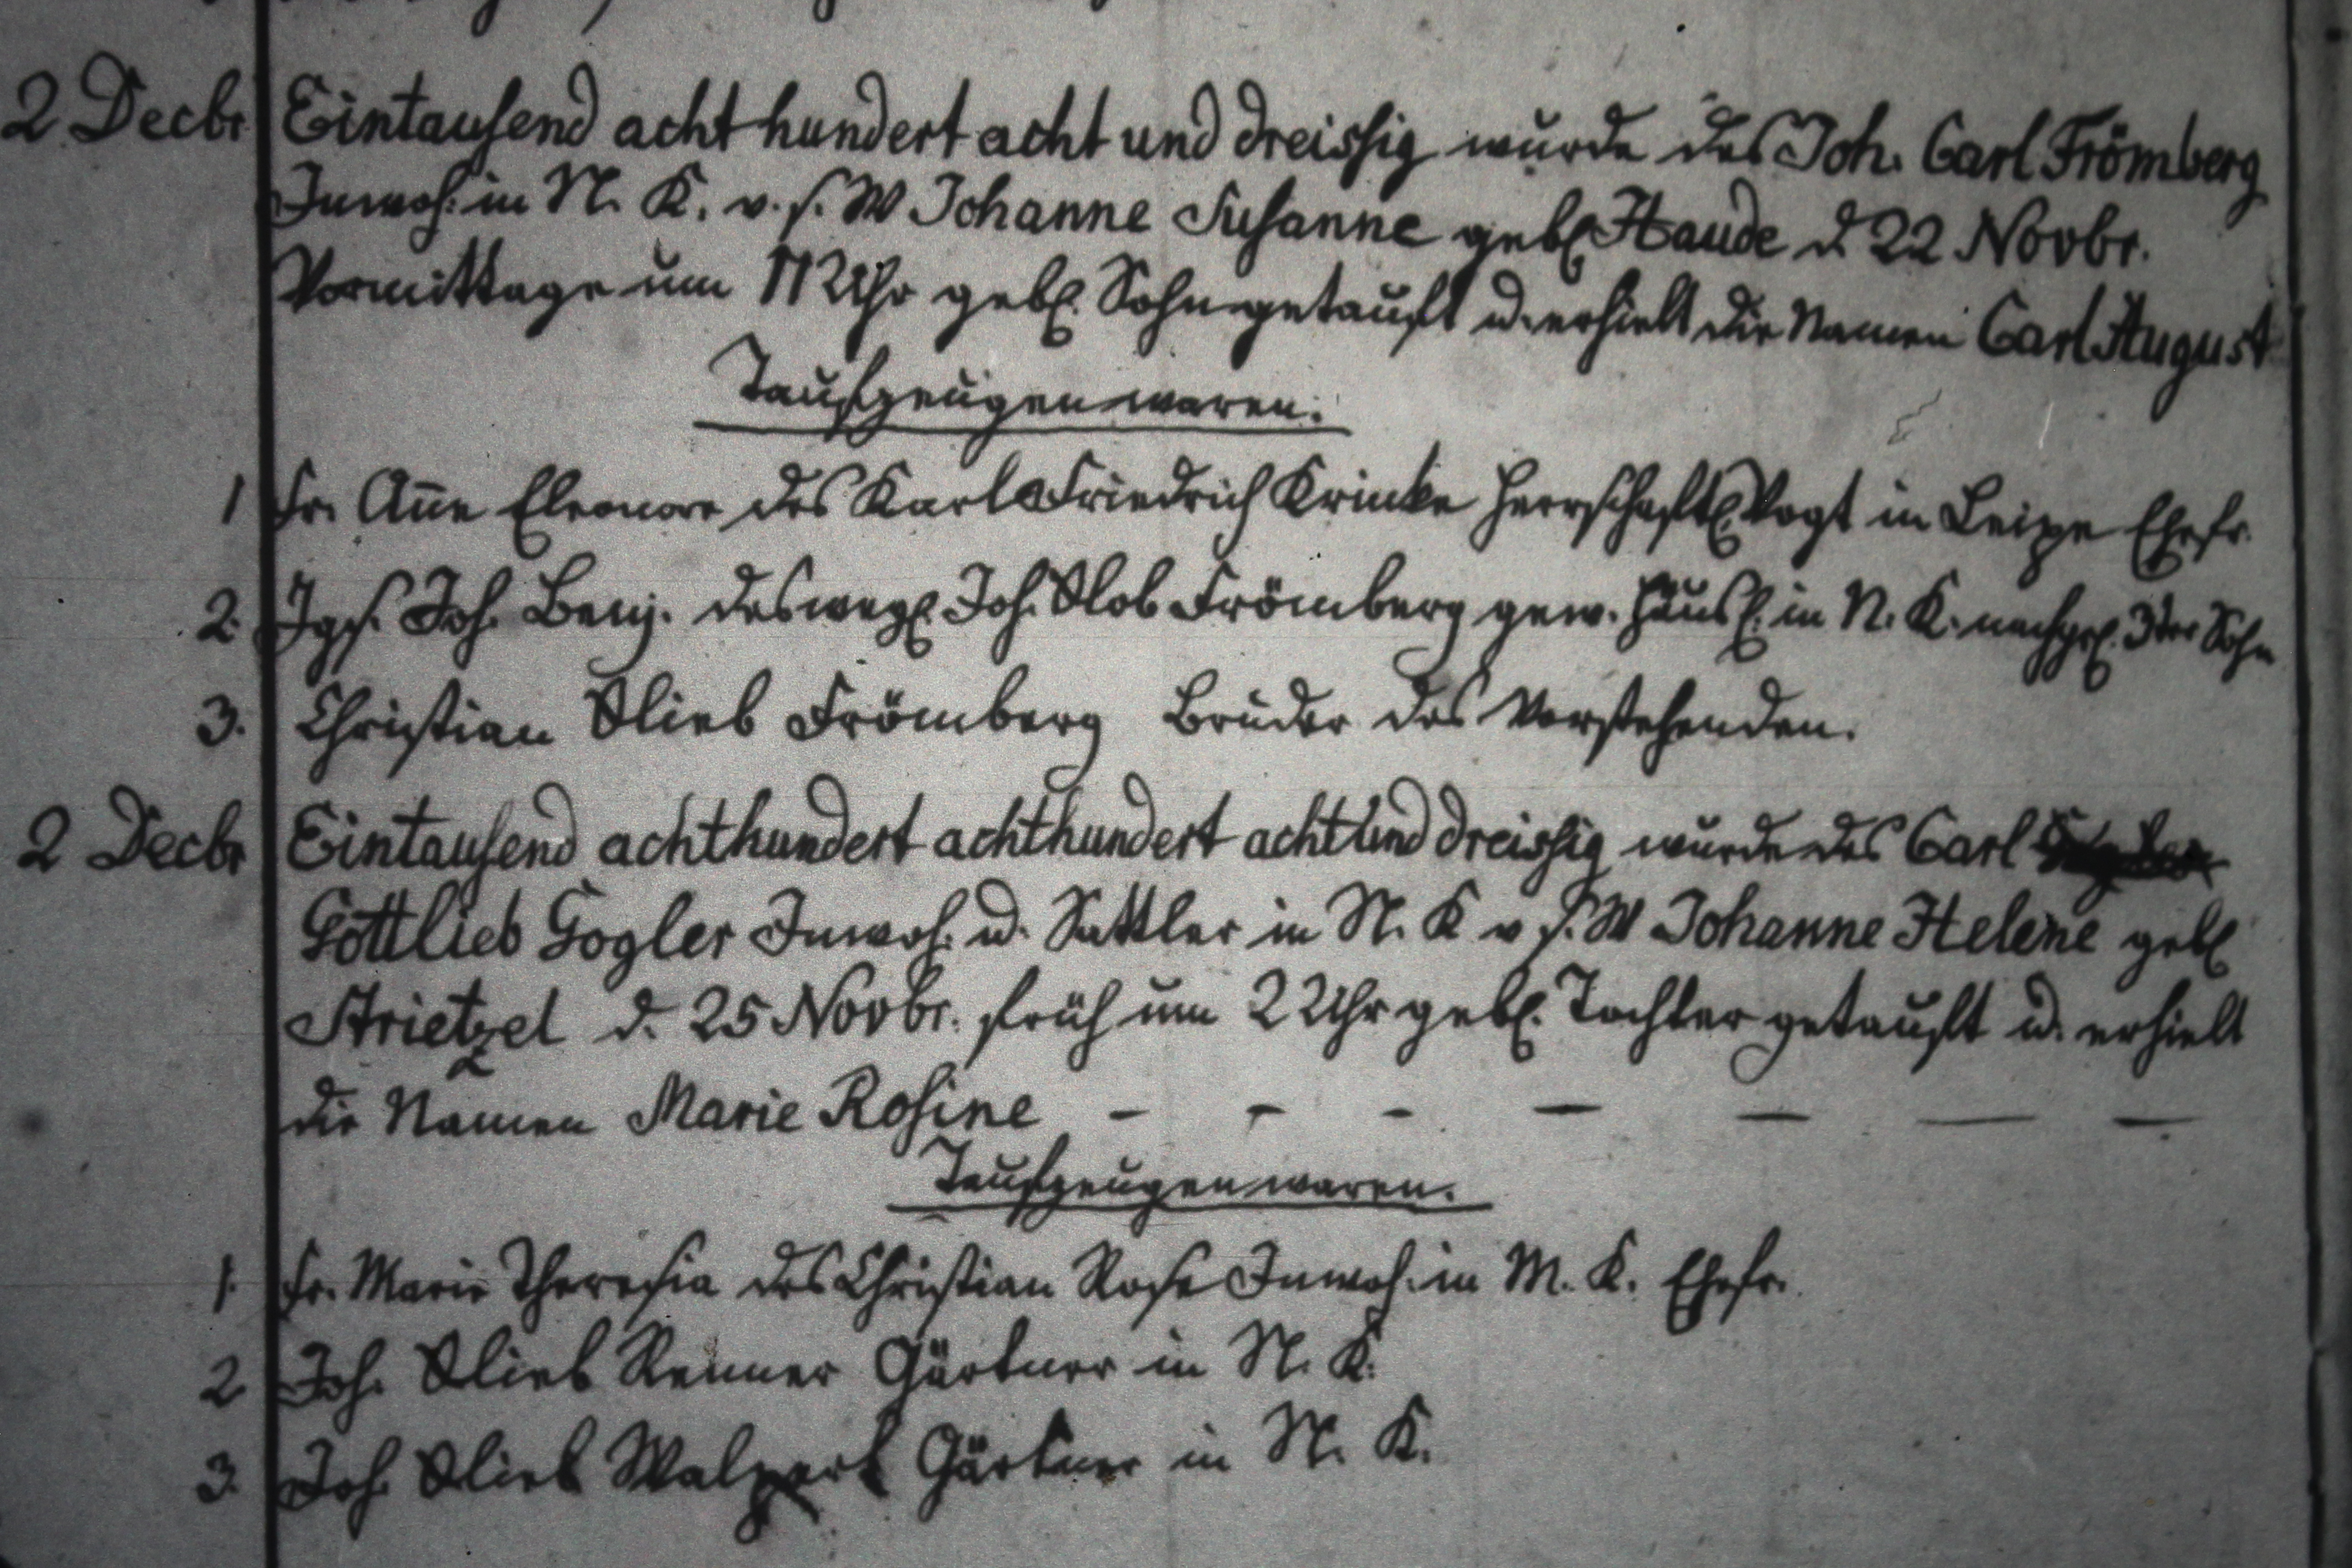 2 Decbr Eintausend acht hundert acht und dreissig wurde des Joh. Carl Frömberg
Inwoh. in N. K. v. s. W Johanne Susanne gebl Haude d. 22 Novbr.
Vormittags um 11 Uhr gebl. Sohn getauft u. erhielt die Namen Carl August
Taufzeugen waren:
1 Fr. Añe Eleonore des Karl Friedrich Krinke Herrschaftl Vogt in Leipe Ehefr.
2. Jgs. Joh. Benj. des wegl. Joh. Glob Frömberg gew. Häusl. in N. K. nachgel. 3ter Sohn
3. Christian Glieb Frömberg Bruder des Vorstehenden.
2 Decbr Eintausend achthundert achthundert acht und dreissig wurde des Carl
Gottlieb Gogler Inwoh. u. Sattler in N. K v. s. W Johanne Helene gebl
Strietzel d. 25 Novbr. früh um 2 Uhr gebl. Tochter getauft u. erhielt
die Namen Marie Rosine - - - - - - -
Taufzeugen waren.
1. Fr. Marie Theresia des Christian Rose Inwoh. in M. K. Ehefr.
2 Joh. Glieb Renner Gärtner in N. K.
3. Joh. Glieb Walpert Gärtner in N. K.